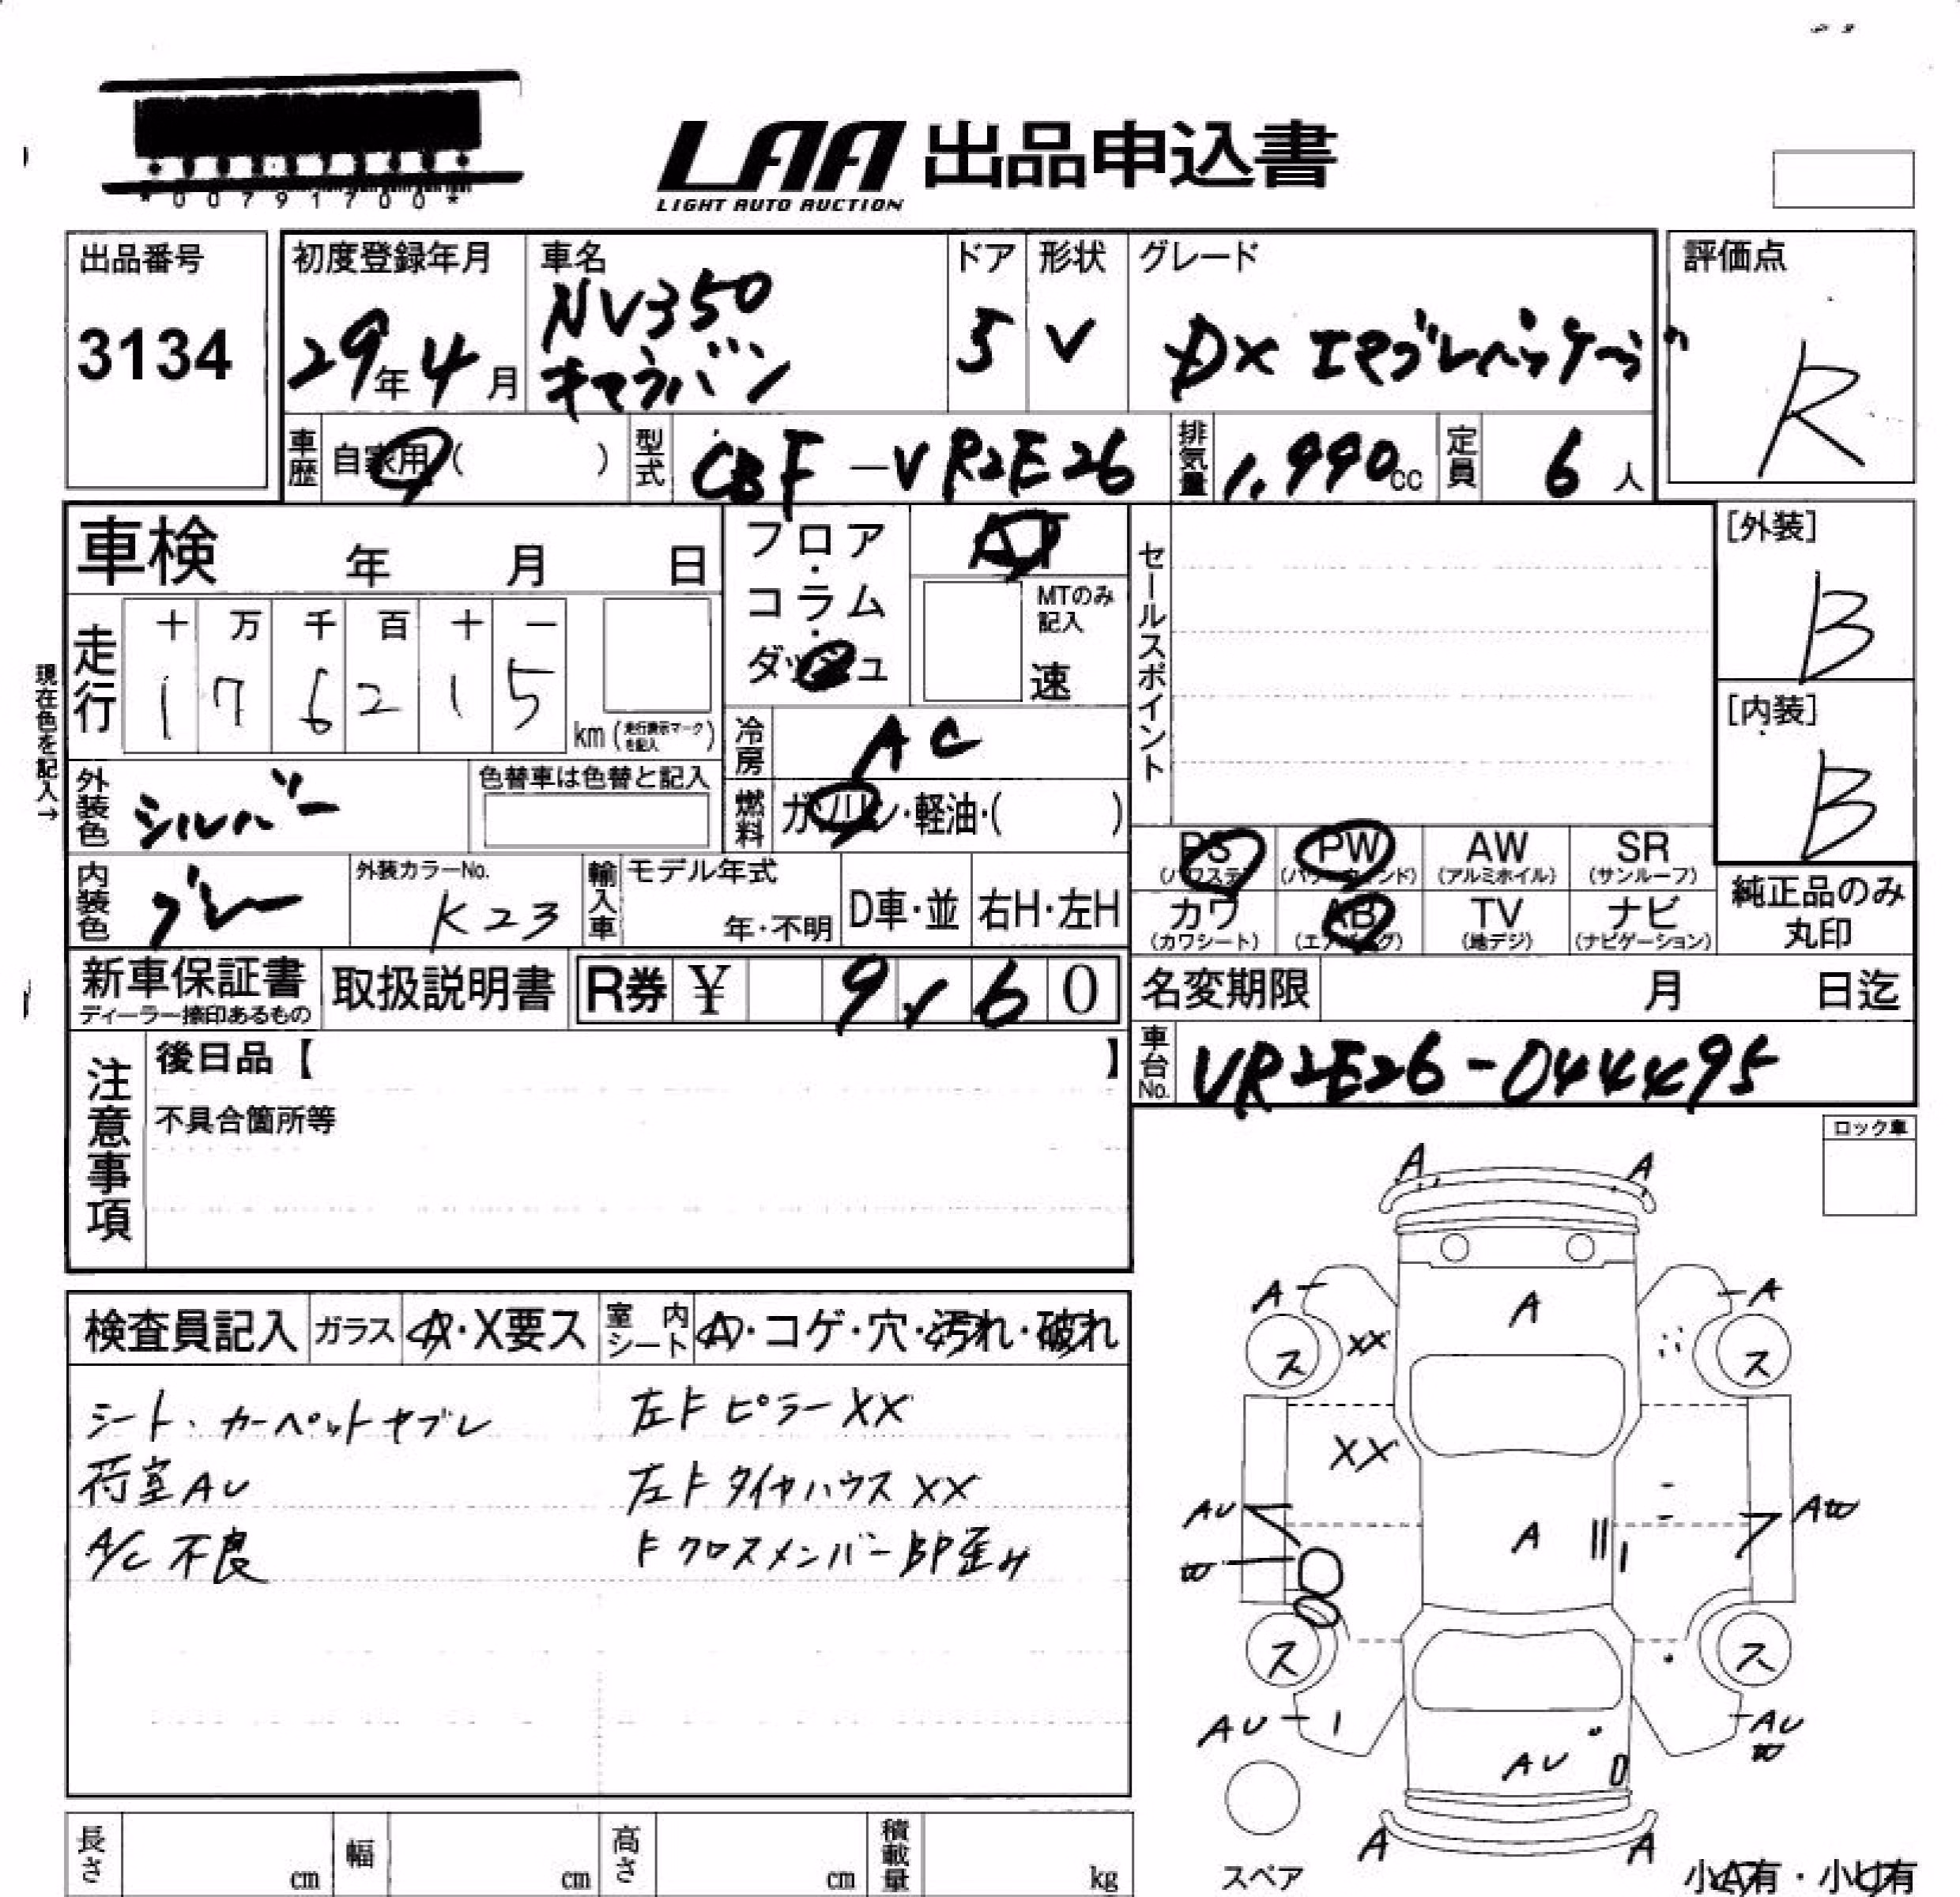 *00791700*
LAA 出品申込書
LIGHT AUTO AUCTION
出品番号
3134
初度登録年月
29年4月
車名
NV350
キャラバン
ドア
5
形状
V
グレード
DX エマブレパッケージ
評価点
R
車歴
自家用 ( )
型式
CBF-VR2E26
排気量
1,990cc
定員
6人
車検 年 月 日
フロア・コラム・ダッシュ
AT
MTのみ記入
速
セールスポイント
[外装]
B
[内装]
B
現在色を記入→
走行
十 万 千 百 十 一
1 7 6 2 1 5
km (走行表示マークを記入)
冷房
AC
外装色
シルバー
色替車は色替と記入
燃料
ガソリン・軽油・( )
内装色
グレー
外装カラーNo.
K23
輸入車
モデル年式
年・不明
D車・並
右H・左H
PS
(パワステ)
PW
(パワーウィンド)
AW
(アルミホイル)
SR
(サンルーフ)
カワ
(カワシート)
AB
(エアバッグ)
TV
(地デジ)
ナビ
(ナビゲーション)
純正品のみ
丸印
新車保証書
ディーラー捺印あるもの
取扱説明書
R券 ¥ 9 , 6 0
名変期限 月 日迄
車台No.
VR2E26-044495
注意事項
後日品【 】
不具合箇所等
ロック車
検査員記入
ガラス
A・X要ス
室内シート
A・コゲ・穴・汚れ・破れ
シート・カーペットヤブレ
荷室AU
A/C 不良
左Fピラー XX
左Fタイヤハウス XX
Fクロスメンバー部歪み
A A
A A A
ス XX ス
XX
AU A AW
W
ス ス
AU AU
W
AU
A A
スペア
小A有・小U有
長さ cm
幅 cm
高さ cm
積載量 kg